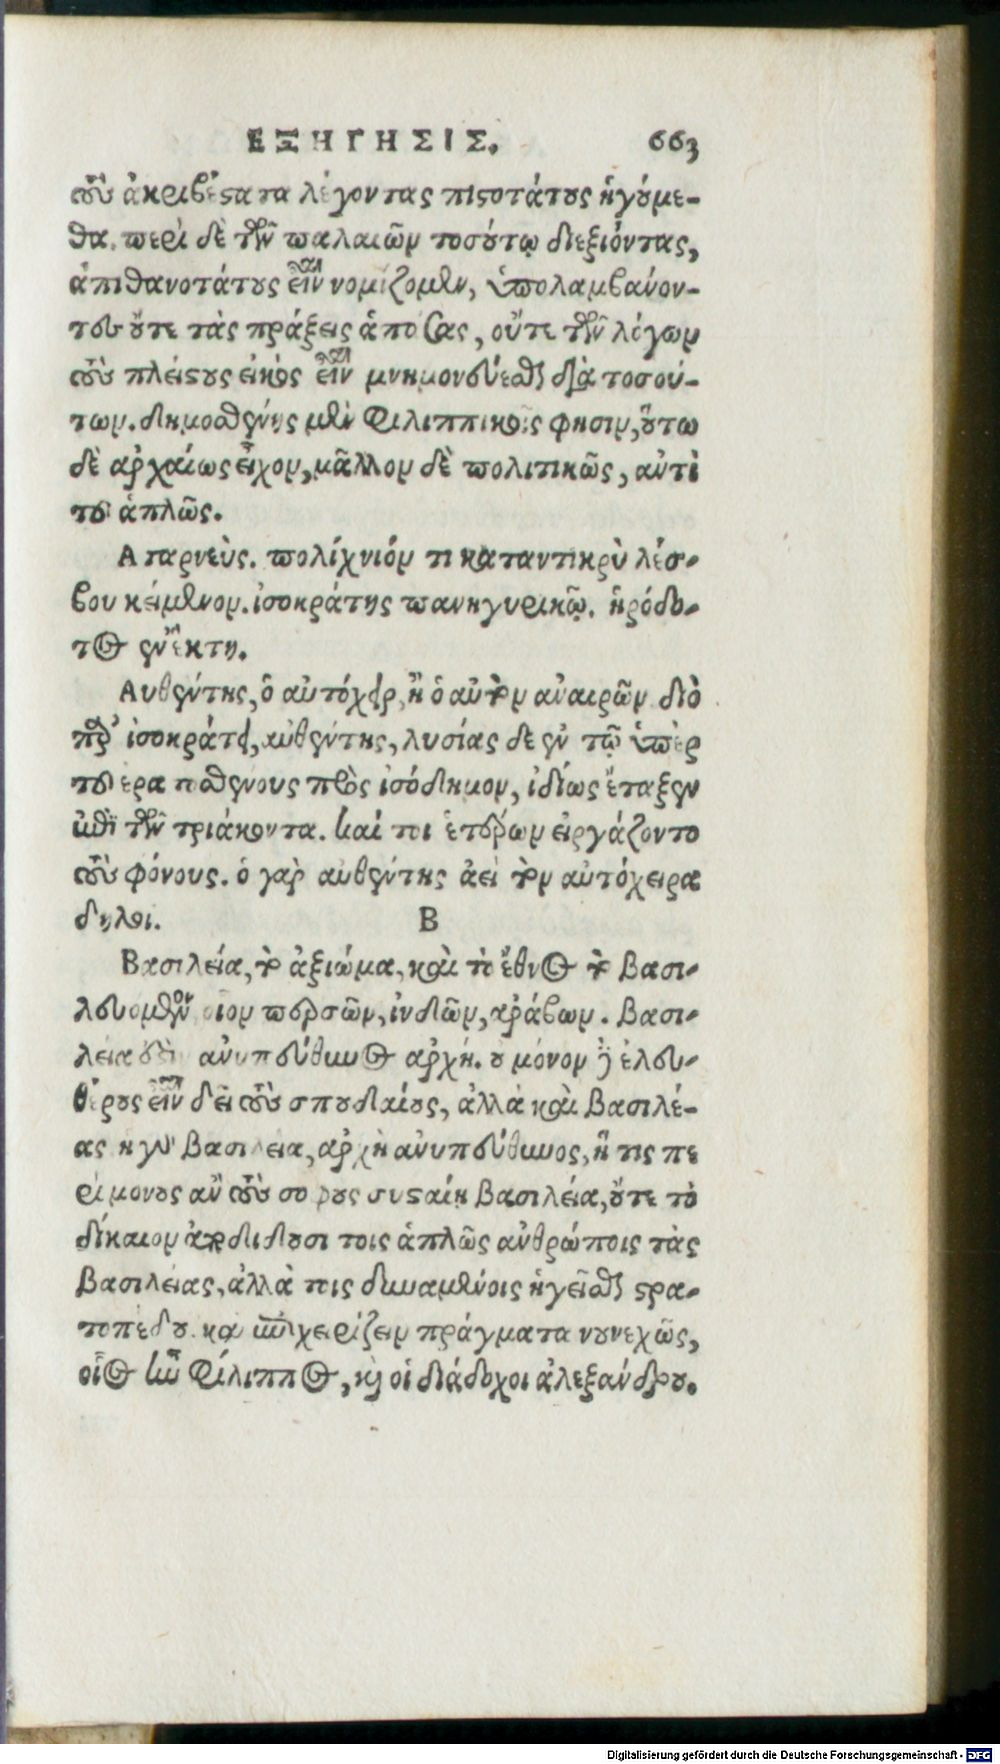 ΕΞΗΓΗΣΙΣ. 663
τοὺς ἀκριβέστατα λέγοντας πιστοτάτους ἡγούμε-
θα. περὶ δὲ τῶν παλαιῶν τοσούτῳ διεξιόντας,
ἀπιθανοτάτους εἶναι νομίζομεν, ὑπολαμβάνον-
τες οὔτε τὰς πράξεις ἁπάσας, οὔτε τῶν λόγων
τοὺς πλείστους εἰκὸς εἶναι μνημονεύεσθαι διὰ τοσού-
των. δημοσθένης μὲν Φιλιππικοῖς φησιν, οὕτω
δὲ ἀρχαίως εἶχον, μᾶλλον δὲ πολιτικῶς, ἀντὶ
τοῦ ἁπλῶς.
Αταρνεὺς. πολίχνιόν τι καταντικρὺ λέσ-
βου κείμενον. ἰσοκράτης πανηγυρικῷ. ἡρόδο-
τος ἐν ἕκτῃ.
Αυθέντης, ὁ αὐτόχειρ, ἢ ὁ αὑτὸν ἀναιρῶν διὸ
παρ' ἰσοκράτει, αὐθέντης, λυσίας δε ἐν τῷ ὑπὲρ
τοῦ ἐρατοσθένους πρὸς ἰσόδημον, ἰδίως ἔταξεν
ἐπὶ τῶν τριάκοντα. καί τοι ἑτέρων εἰργάζοντο
τοὺς φόνους. ὁ γὰρ αὐθέντης ἀεὶ τὸν αὐτόχειρα
δηλοῖ. Β
Βασιλεία, τὸ ἀξιώμα, καὶ τὸ ἔθνος τὸ βασι-
λευομένον οἷον περσῶν, ἰνδῶν, ἀράβων. βασι-
λεία δὲ ἀνυπεύθυνος ἀρχή. οὐ μόνον γὰρ ἐλευ-
θέρους εἶναι δεῖ τοὺς σπουδαίους, ἀλλὰ καὶ βασιλέ-
ας ἡ γὰρ βασιλεία, ἀρχὴ ἀνυπεύθυνος, ἥ τις πε
ρὶ μόνους ἂν τοὺς σοφους συσταίη βασιλεία, οὔτε τὸ
δίκαιον ἀποδιδουσι τοις ἁπλῶς ἀνθρώποις τὰς
βασιλείας, ἀλλὰ τοις δυναμένοις ἡγεῖσθαι στρα-
τοπέδου. και ἐπιχειρίζειν πράγματα νουνεχῶς,
οἷος ἦν Φίλιππος, καὶ οἱ διάδοχοι ἀλεξάνδρου.
Digitalisierung gefördert durch die Deutsche Forschungsgemeinschaft - DFG